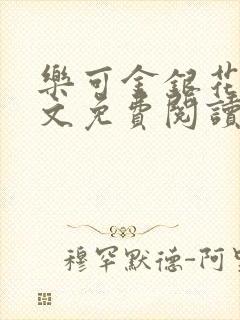 樂可金銀花
文免費閱讀
穆罕默德-阿